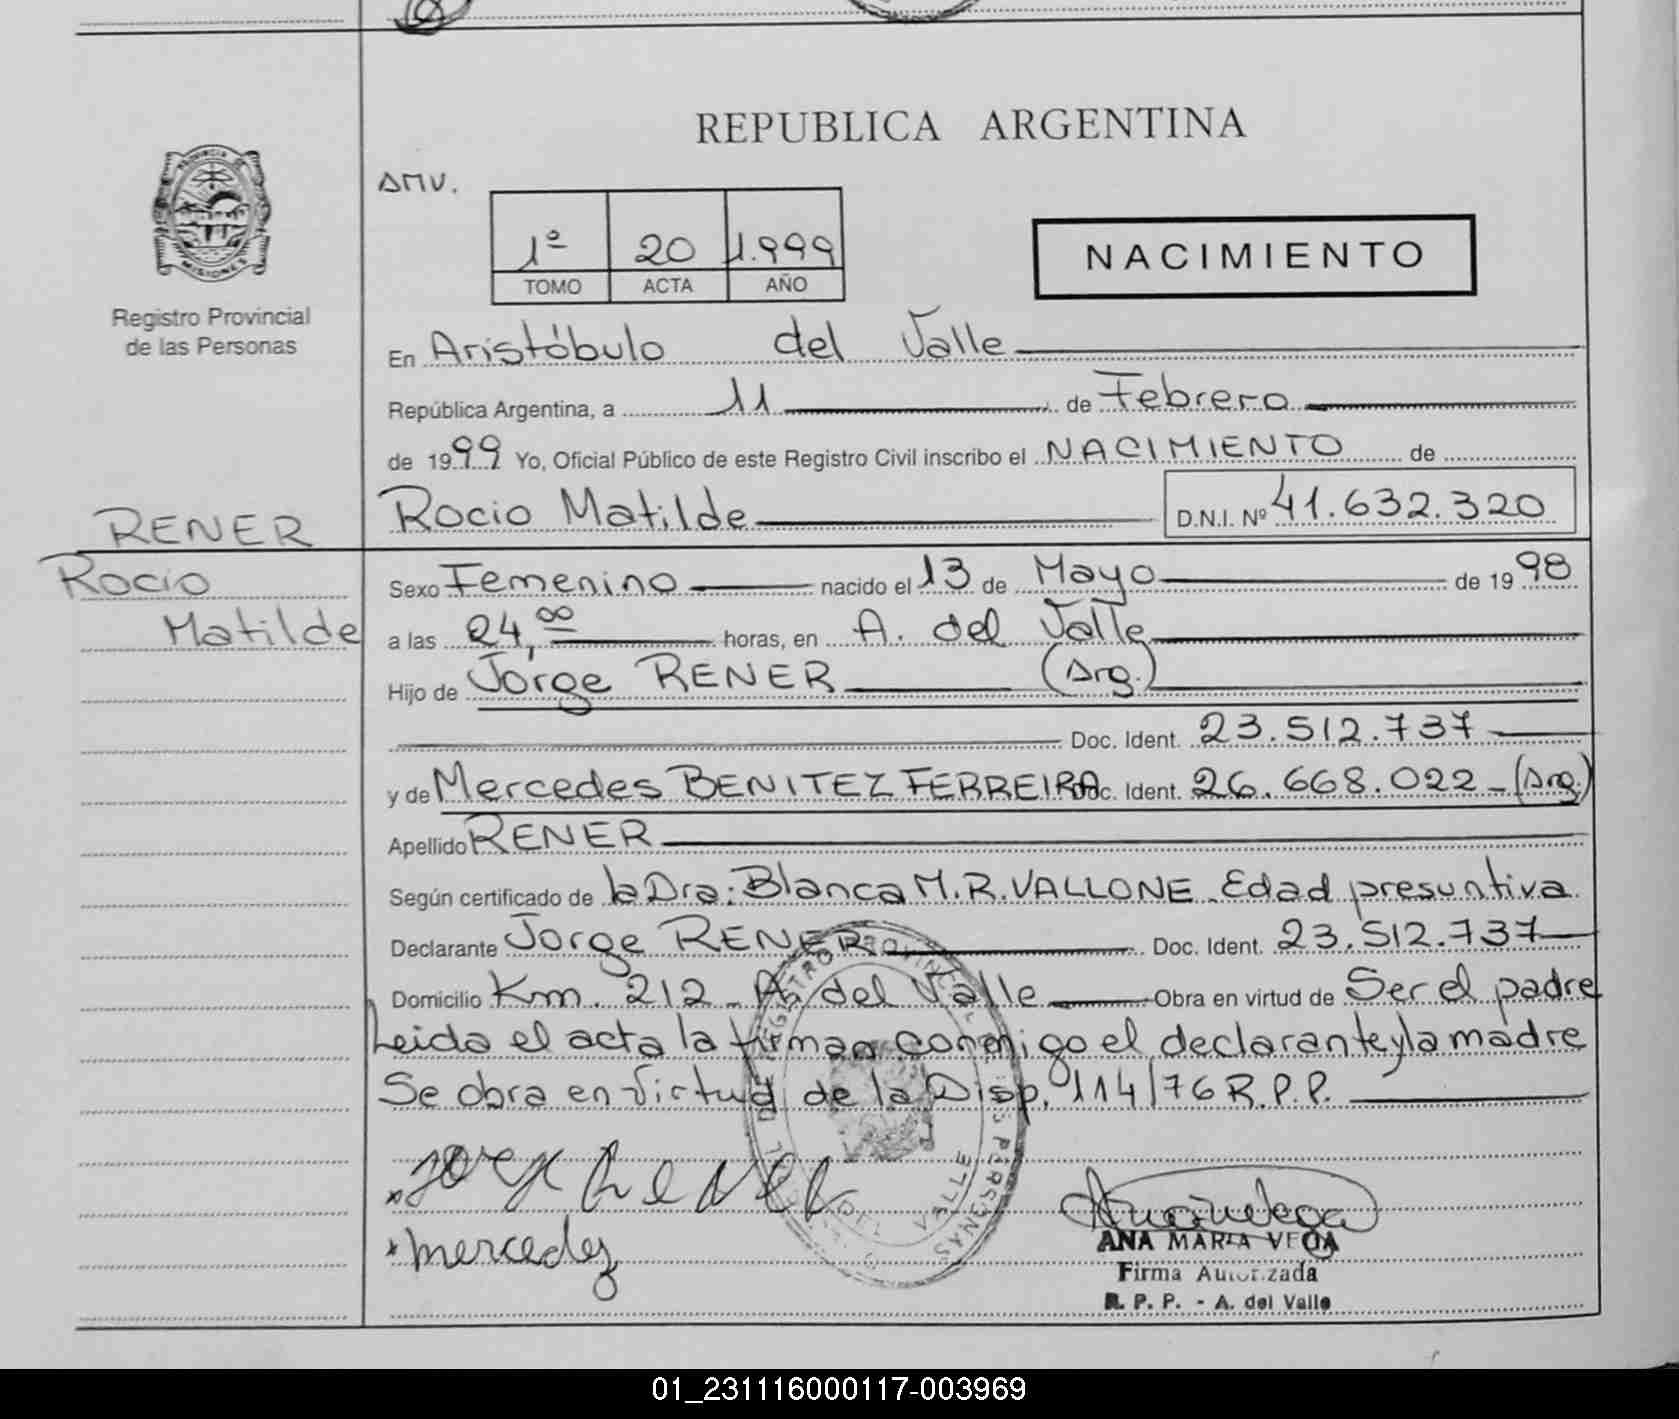 REPUBLICA ARGENTINA
PROVINCIA DE
MISIONES
Registro Provincial
de las Personas
AMV.
1º 20 1.999
TOMO ACTA AÑO
NACIMIENTO
En Aristóbulo del Valle
República Argentina, a 11 de Febrero
de 1999 Yo, Oficial Público de este Registro Civil inscribo el NACIMIENTO de
Rocio Matilde D.N.I. Nº 41.632.320
RENER
Rocio
Matilde
Sexo Femenino nacido el 13 de Mayo de 1998
a las 24,00 horas, en A. del Valle
Hijo de Jorge RENER (Arg.)
Doc. Ident. 23.512.737
y de Mercedes BENITEZ FERREIRA Doc. Ident. 26.668.022 - (Arg.)
Apellido RENER
Según certificado de la Dra: Blanca M.R. VALLONE. Edad presuntiva.
Declarante Jorge RENER Doc. Ident. 23.512.737
Domicilio Km. 212 - A. del Valle Obra en virtud de Ser el padre
Leida el acta la firman conmigo el declarante y la madre
Se obra en virtud de la Disp. 114/76 R.P.P.
Jorge Rener
mercedes
REGISTRO PROVINCIAL DE LAS PERSONAS
DEL VALLE
ANA MARIA VEGA
Firma Autorizada
R. P. P. - A. del Valle
01_231116000117-003969